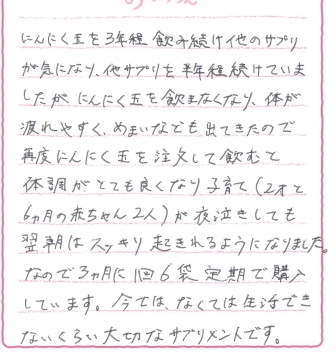 にんにく玉を3年程飲み続け他のサプリ
が気になり、他サプリを半年程続けていま
したが にんにく玉を飲まなくなり、体が
疲れやすく、めまいなども出てきたので
再度にんにく玉を注文して飲むと
体調がとても良くなり子育て(2才と
6ヵ月の赤ちゃん2人)が夜泣きしても
翌朝はスッキリ起きれるようになりました。
なので3ヵ月に1回6袋定期で購入
しています。今では、なくては生活でき
ないくらい大切なサプリメントです。